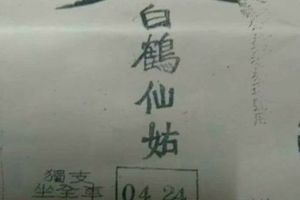 白鶴仙姑
獨支
坐全車
04 24